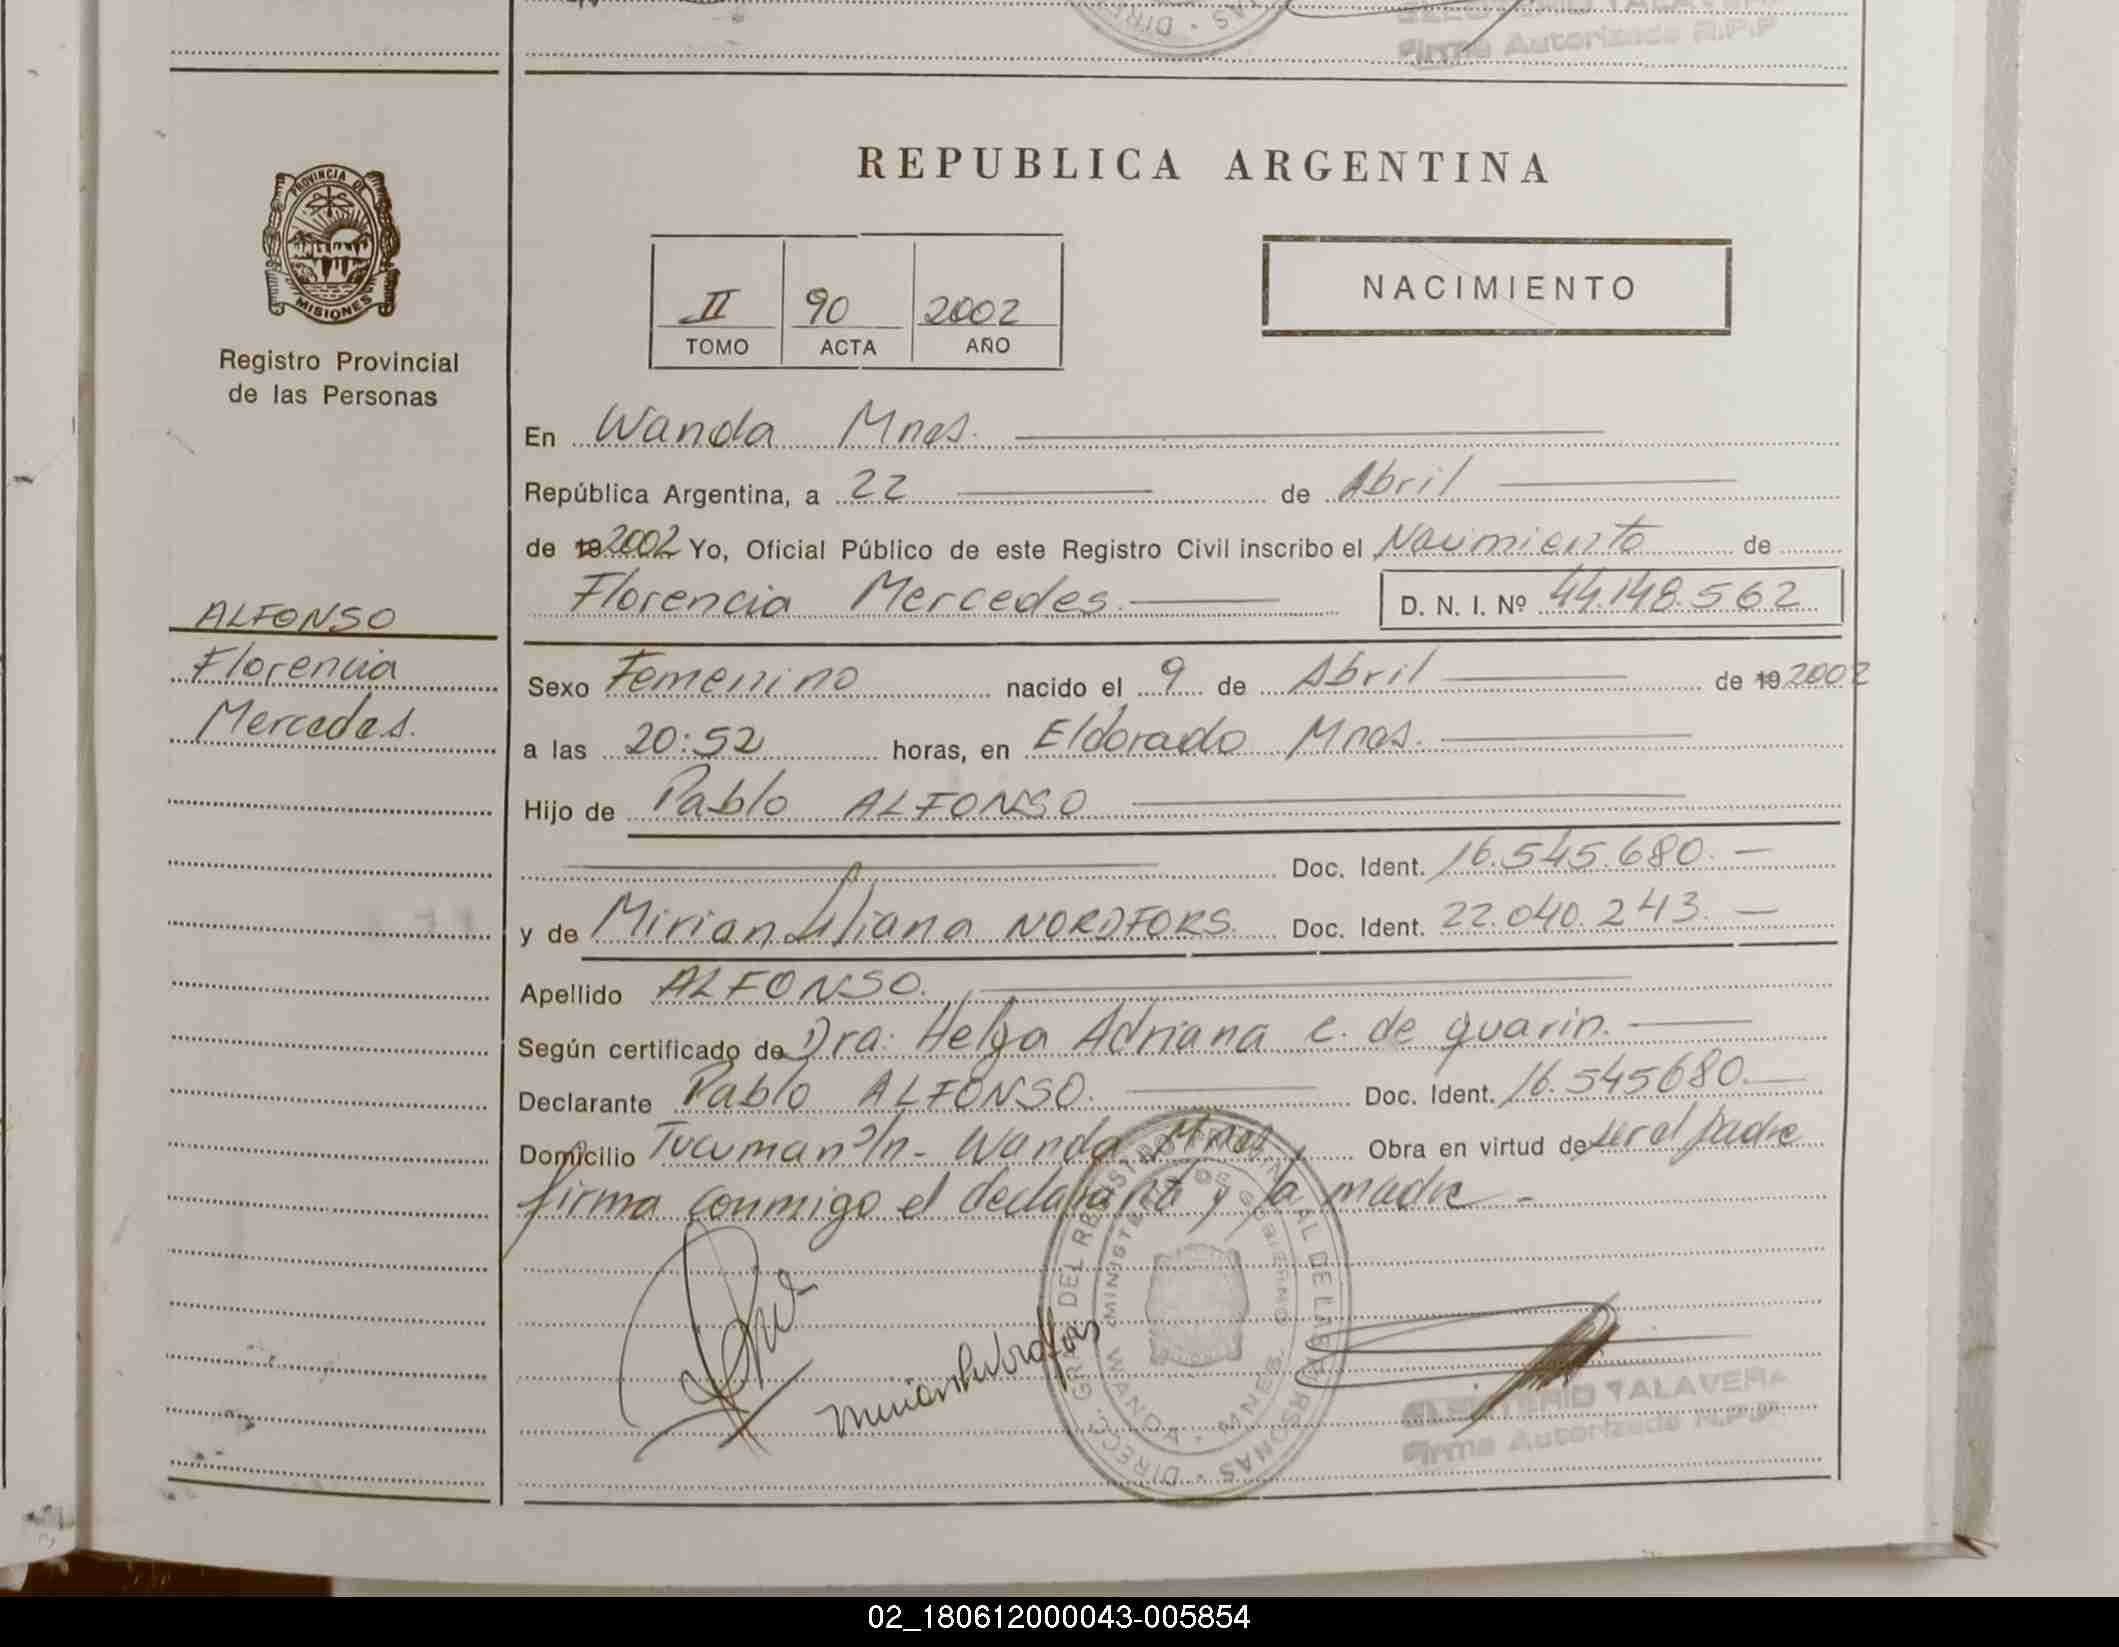 ELEUTERIO TALAVERA
Firma Autorizada R.P.P
REPUBLICA ARGENTINA
PROVINCIA DE
MISIONES
Registro Provincial
de las Personas
II 90 2002
TOMO ACTA AÑO
NACIMIENTO
En Wanda Mnes.
República Argentina, a 22 de Abril
de 19 2002 Yo, Oficial Público de este Registro Civil inscribo el Nacimiento de
Florencia Mercedes. D. N. I. Nº 44.148.562
ALFONSO
Florencia
Mercedes.
Sexo Femenino nacido el 9 de Abril de 19 2002
a las 20:52 horas, en Eldorado Mnes.
Hijo de Pablo ALFONSO
Doc. Ident. 16.545.680.
y de Mirian Liliana NORDFORS. Doc. Ident. 22.040.243.
Apellido ALFONSO.
Según certificado de Dra: Helga Adriana C. de Guarin.
Declarante Pablo ALFONSO. Doc. Ident. 16.545680.
Domicilio Tucuman s/n - Wanda Mnes, Obra en virtud de ser el padre
firma conmigo el declarante y la madre -
DIRECC. GRAL DEL REGISTRO PROVINCIAL DE LAS PERSONAS
MINISTERIO DE GOBIERNO
WANDA - MNES.
ELEUTERIO TALAVERA
Firma Autorizada R.P.P.
02_180612000043-005854